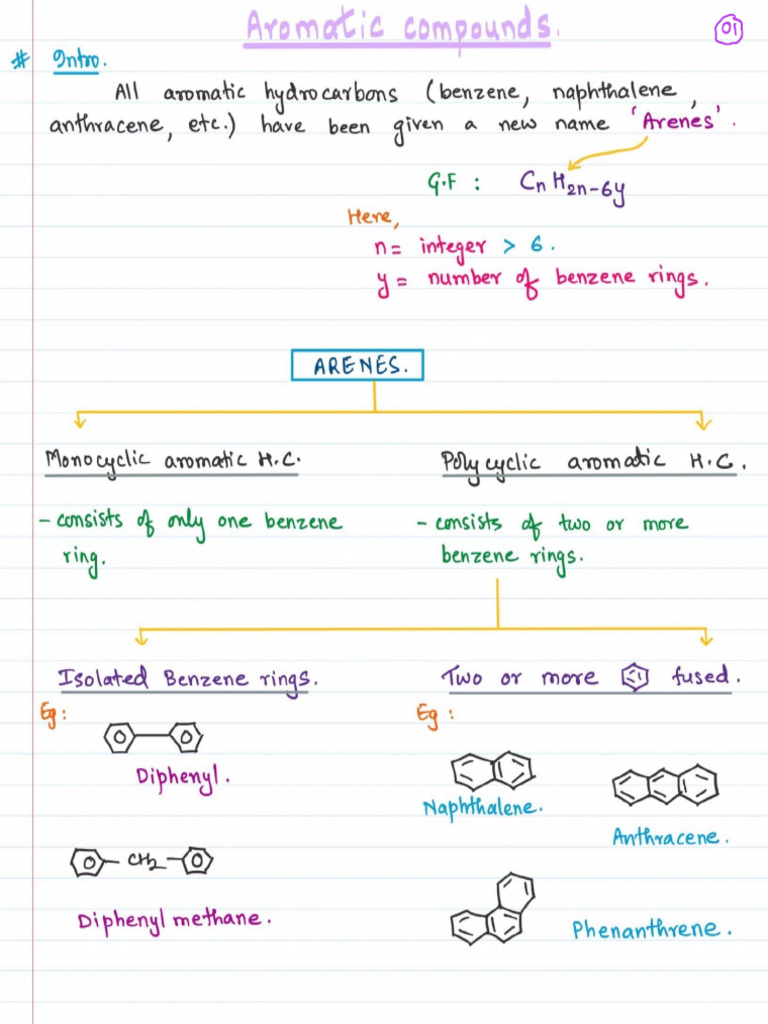 Aromatic compounds.
01
# Intro.
All aromatic hydrocarbons (benzene, naphthalene,
anthracene, etc.) have been given a new name 'Arenes'.
G.F : CnH2n-6y
Here,
n = integer > 6.
y = number of benzene rings.
ARENES.
Monocyclic aromatic H.C.
Polycyclic aromatic H.C.
- consists of only one benzene
ring.
- consists of two or more
benzene rings.
Isolated Benzene rings.
Two or more fused.
Eg:
Eg:
Diphenyl.
Naphthalene.
Anthracene.
CH2
Diphenyl methane.
Phenanthrene.